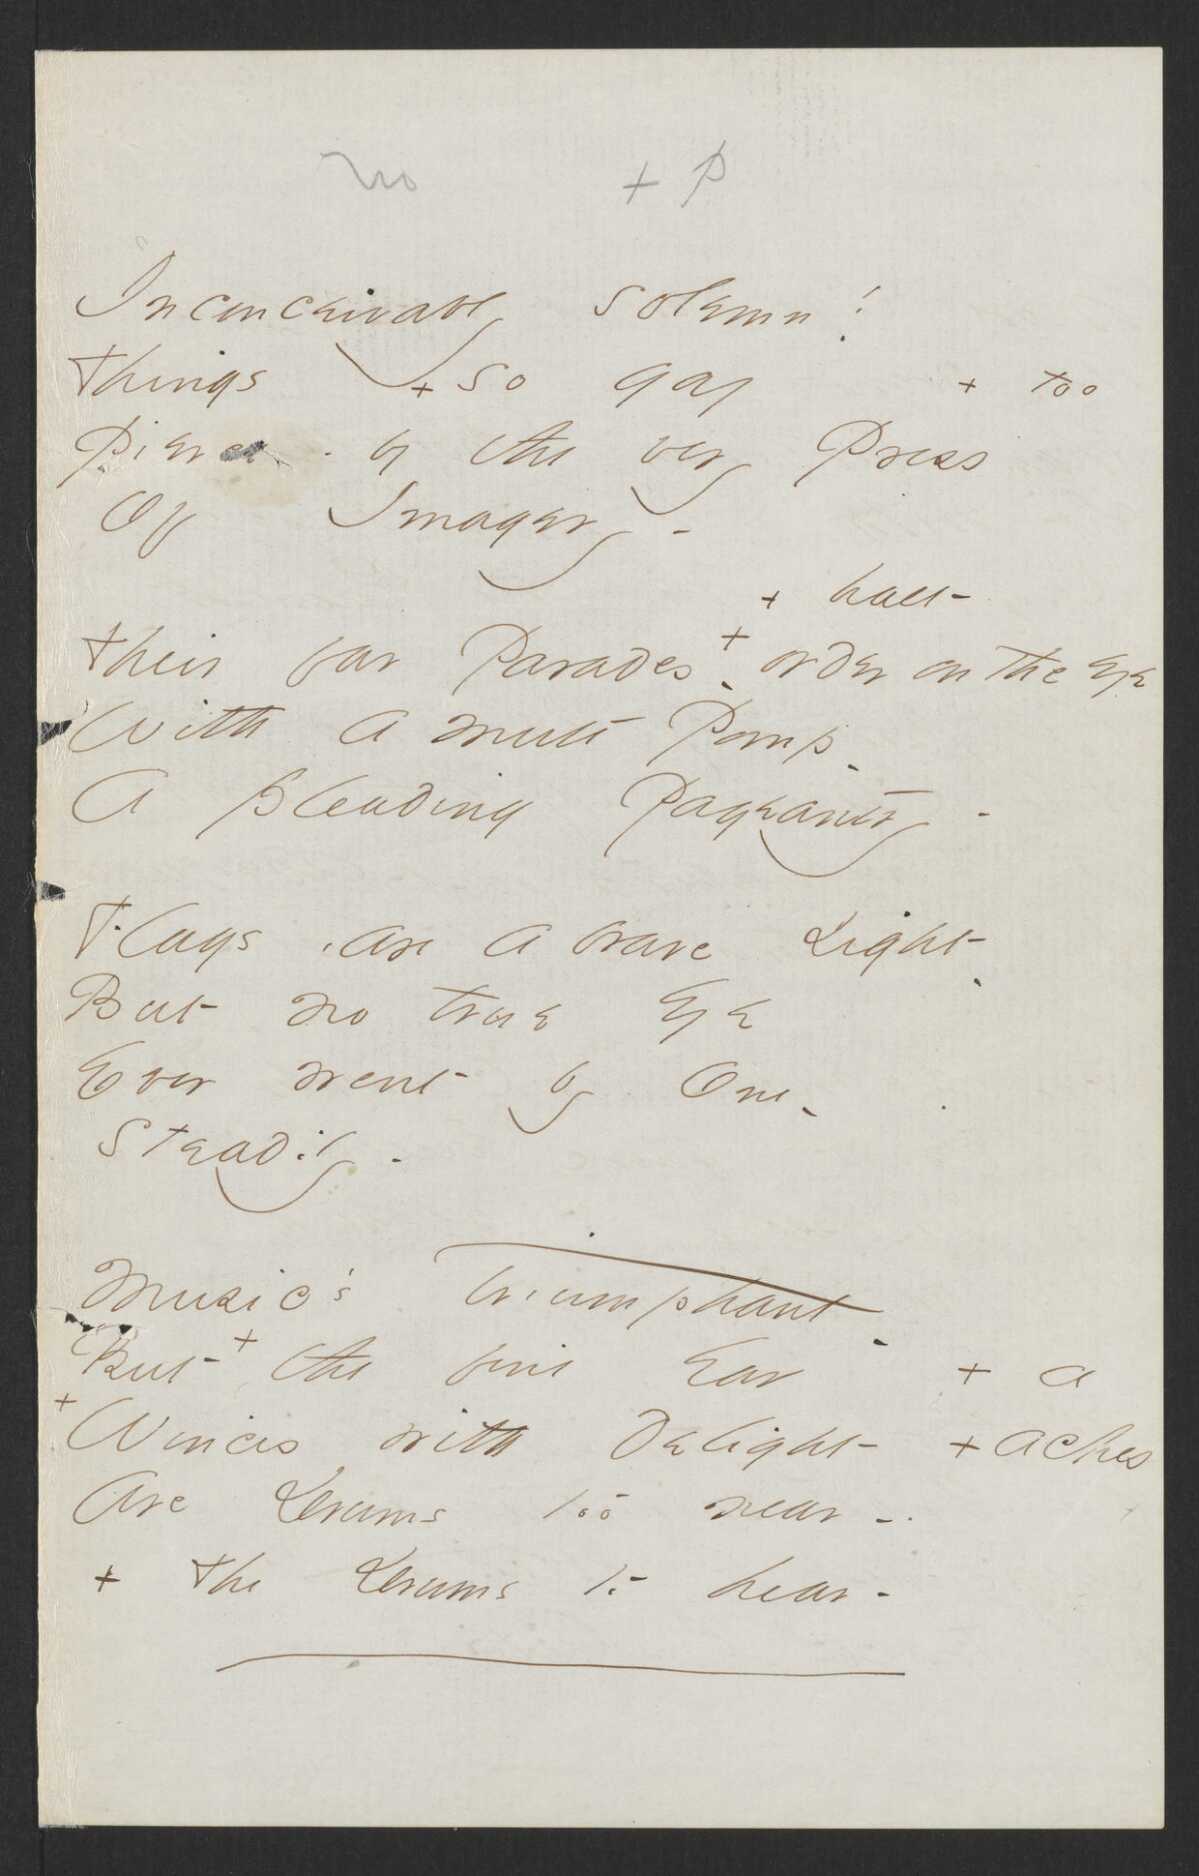 no + P
Inconceivably solemn!
Things + so gay + too
Pierce - by the very Press
Of Imagery -
+ halt -
Their far Parades + - order on the Eye
With a mute Pomp -
A pleading Pageantry -
Flags, are a brave Sight -
But no true Eye
Ever went by One -
Steadily -
Music's triumphant -
But + the fine Ear + a
+ Winces with Delight + aches
Are Drums too near -
+ The Drums to hear -